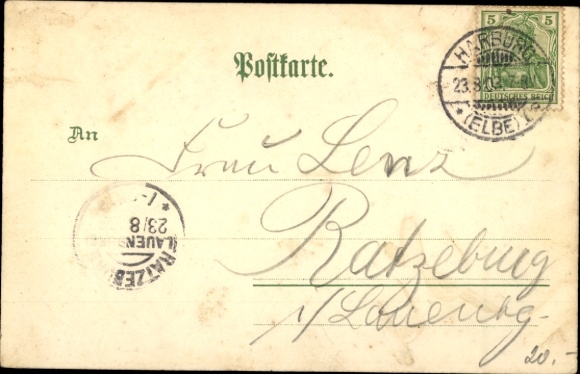 5 5
DEUTSCHES REICH
HARBURG
23.8.03
* (ELBE)
Postkarte.
An
Frau Lenz
Ratzeburg
i/Lauenbg.
23/8
20.-